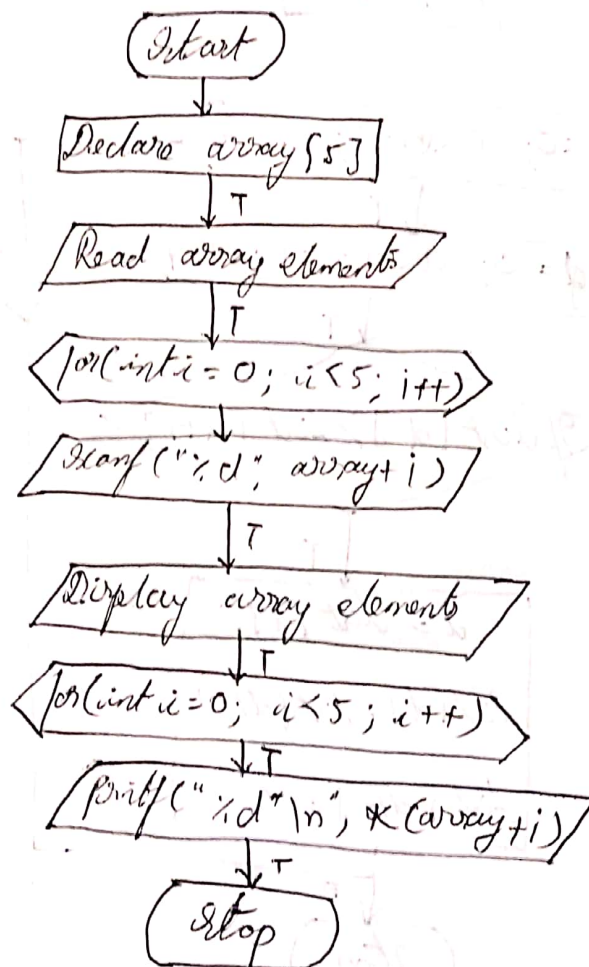 Start
Declare array[5]
T
Read array elements
T
for(int i = 0; i < 5; i++)
scanf("%d", array + i)
T
Display array elements
T
for(int i = 0; i < 5; i++)
T
printf("%d" \n", *(array + i)
T
Stop